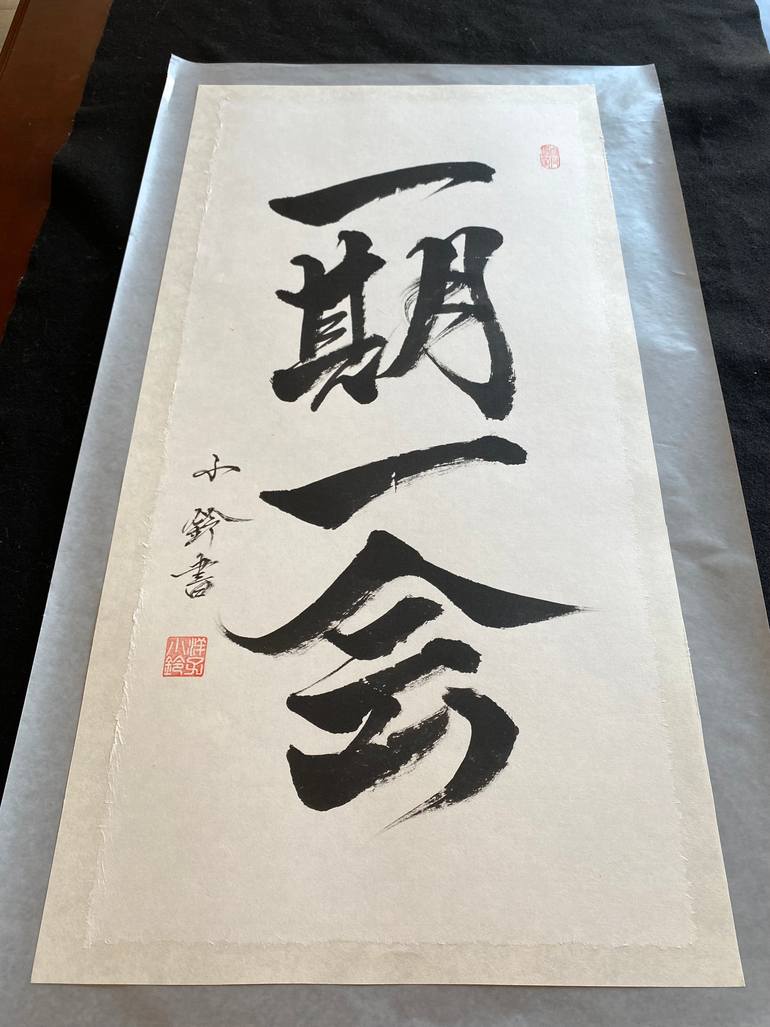 一期一会
小鈴書
洋子
小鈴